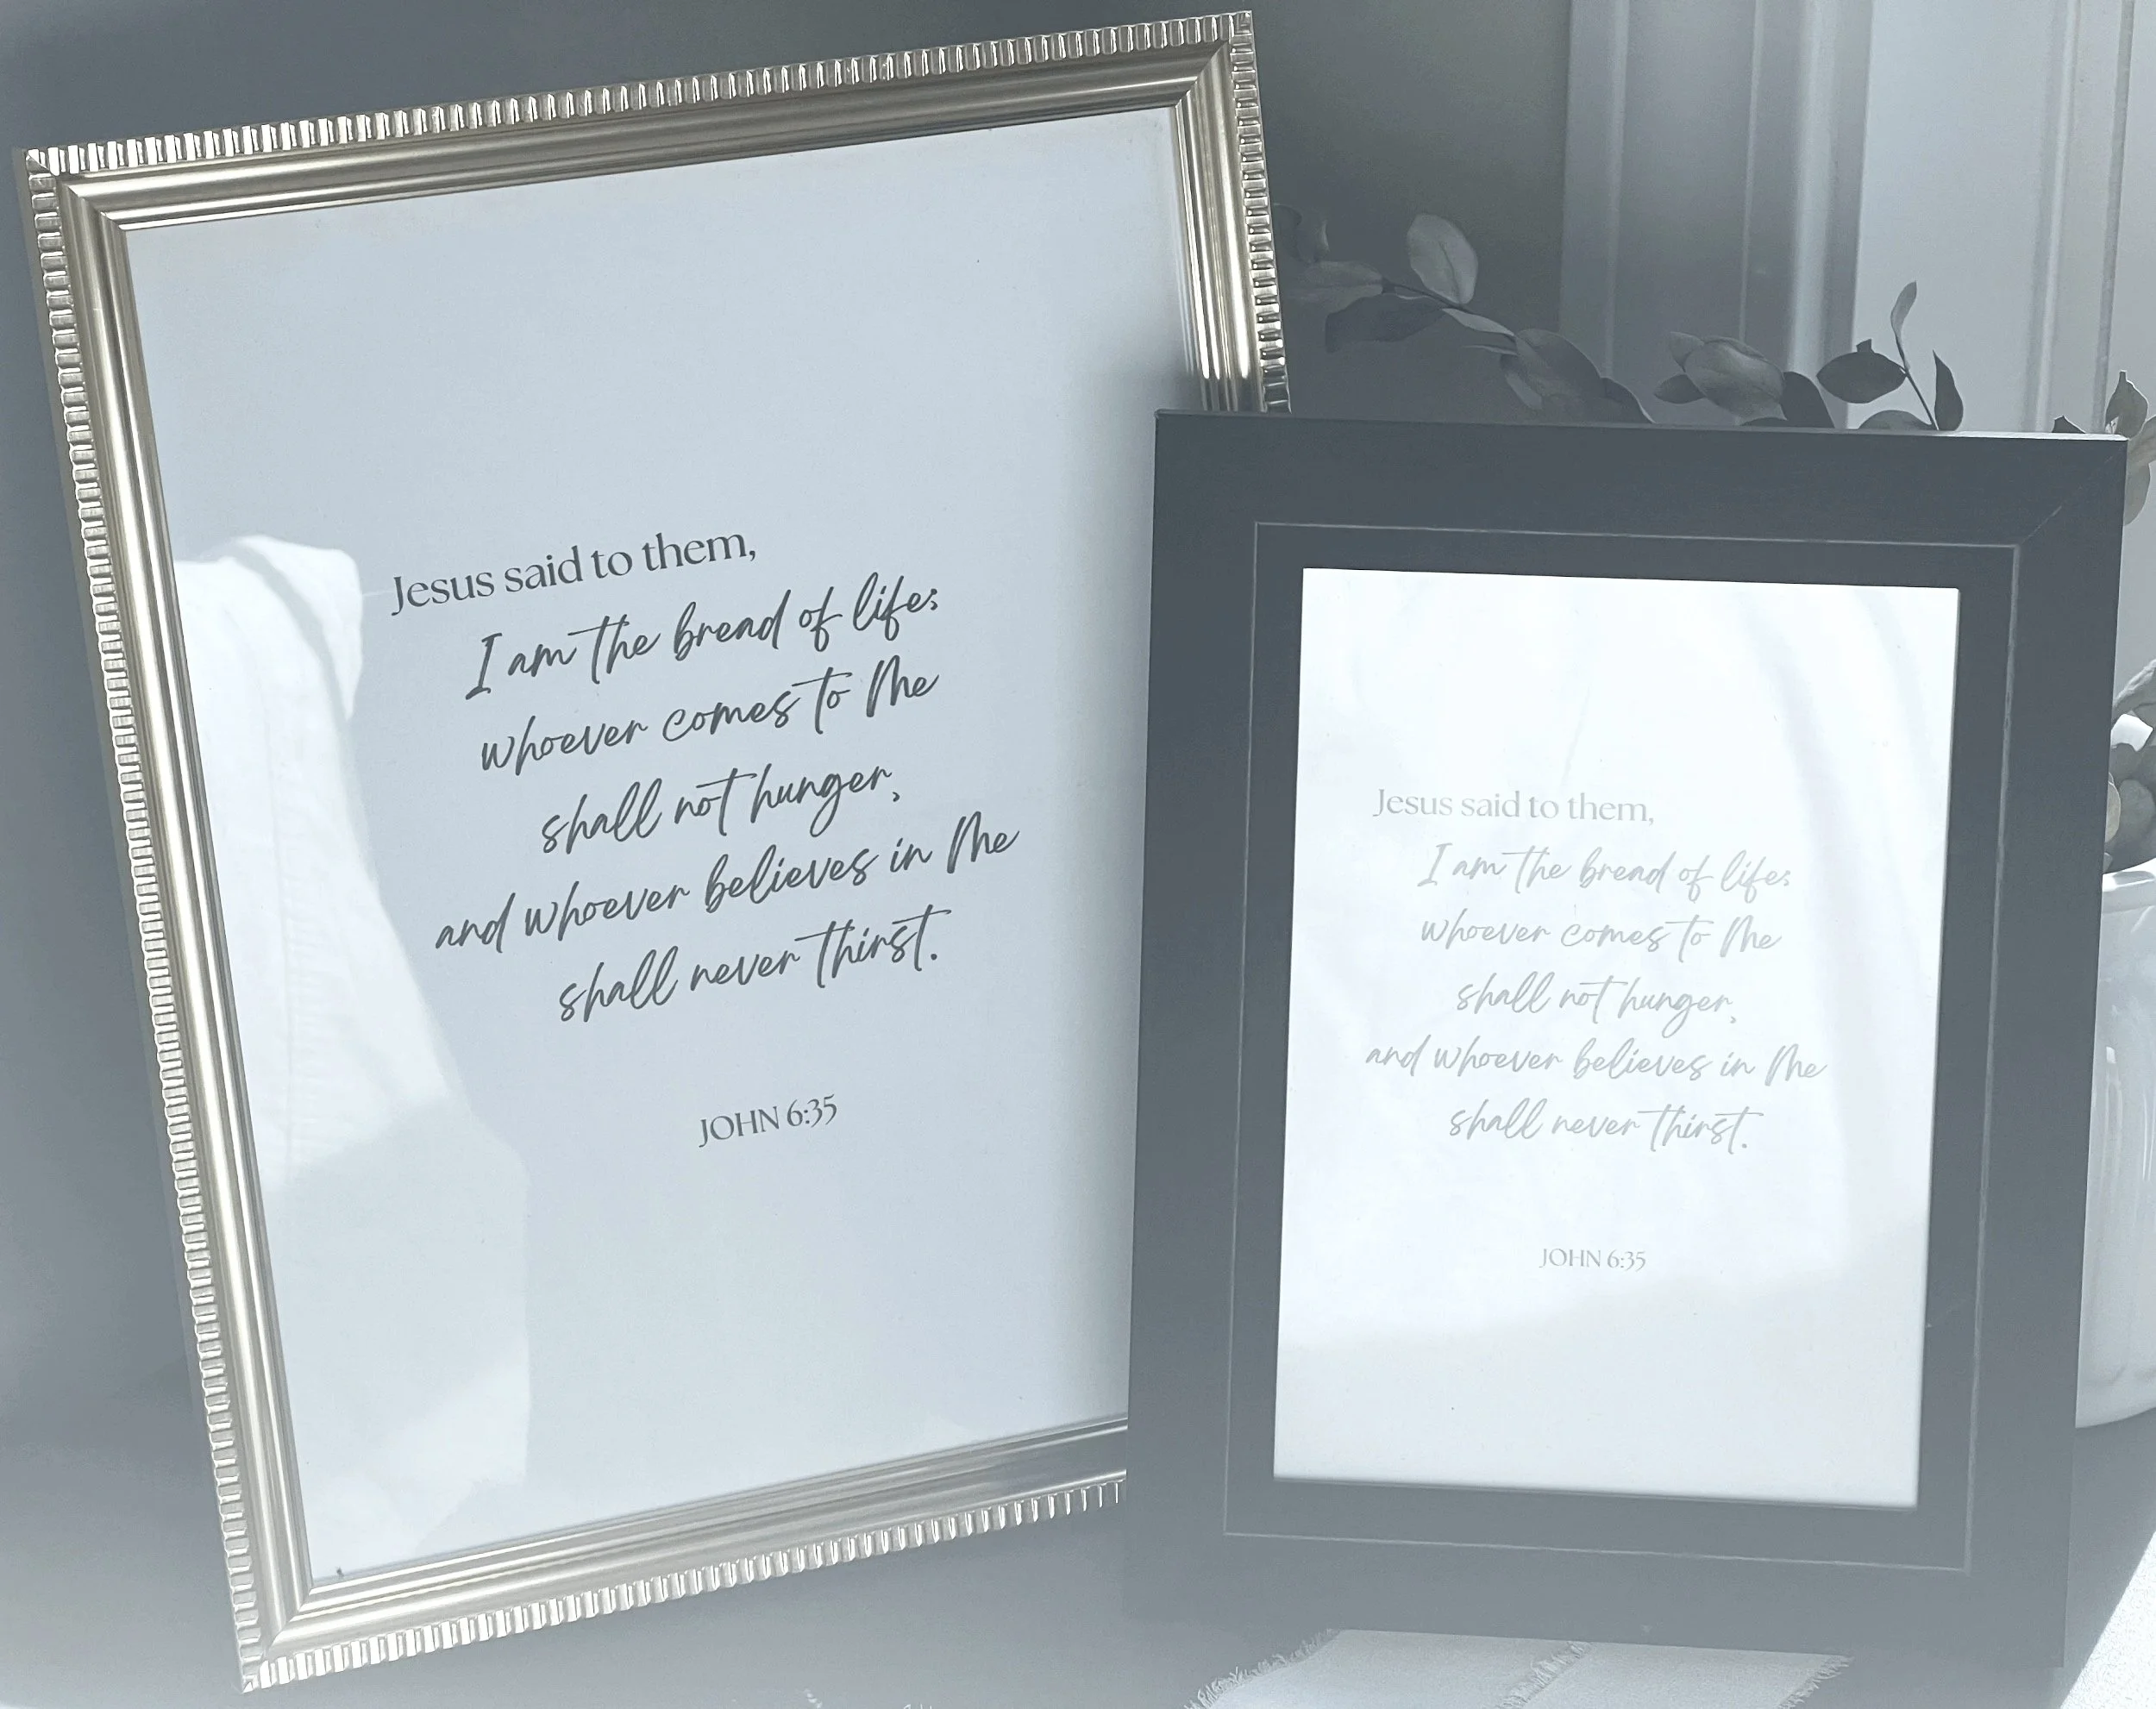 Jesus said to them,
I am the bread of life;
whoever comes to Me
shall not hunger,
and whoever believes in Me
shall never thirst.
JOHN 6:35
Jesus said to them,
I am the bread of life;
whoever comes to Me
shall not hunger,
and whoever believes in Me
shall never thirst.
JOHN 6:35